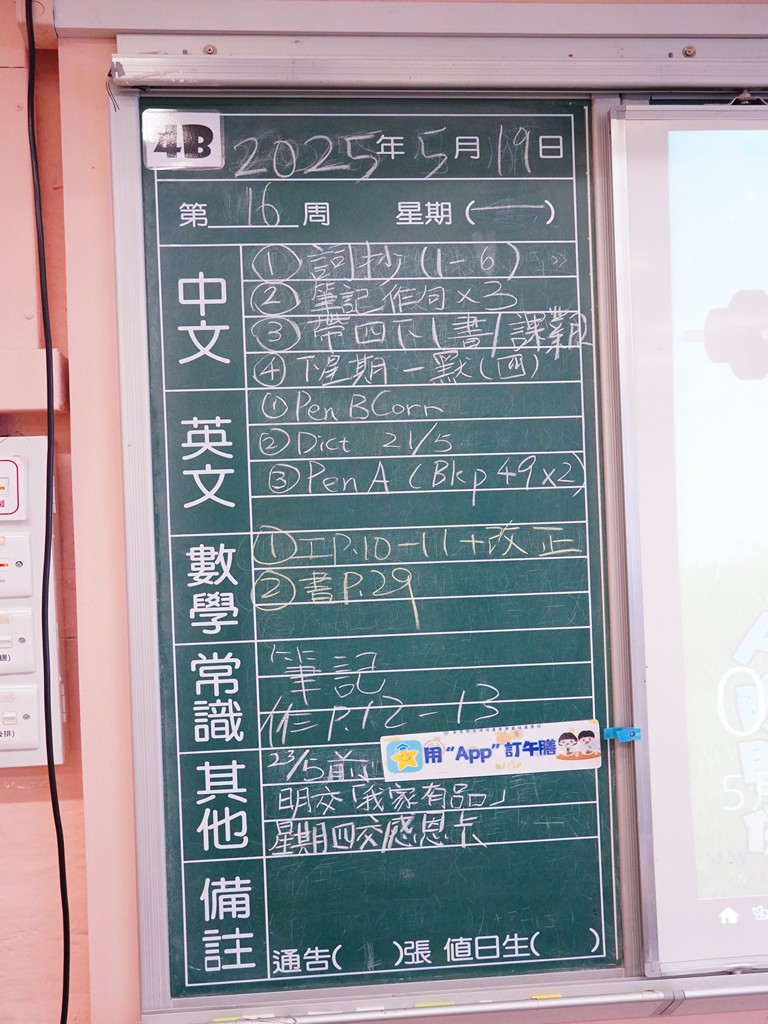 4B
2025年5月19日
第16周 星期(一)
中文
① 詞抄(1-6)
② 筆記作句×3
③ 帶四下1書/課業
④ 下星期一默(四)
英文
① Pen B Corr
② Dict 21/5
③ Pen A (Bk p49x2)
數學
① 工P.10-11+改正
② 書P.29
常識
筆記
作P.12-13
其他
23/5前
用"App"訂午膳
明交「我家有品」
星期四交感恩卡
備註
通告( )張 值日生( )